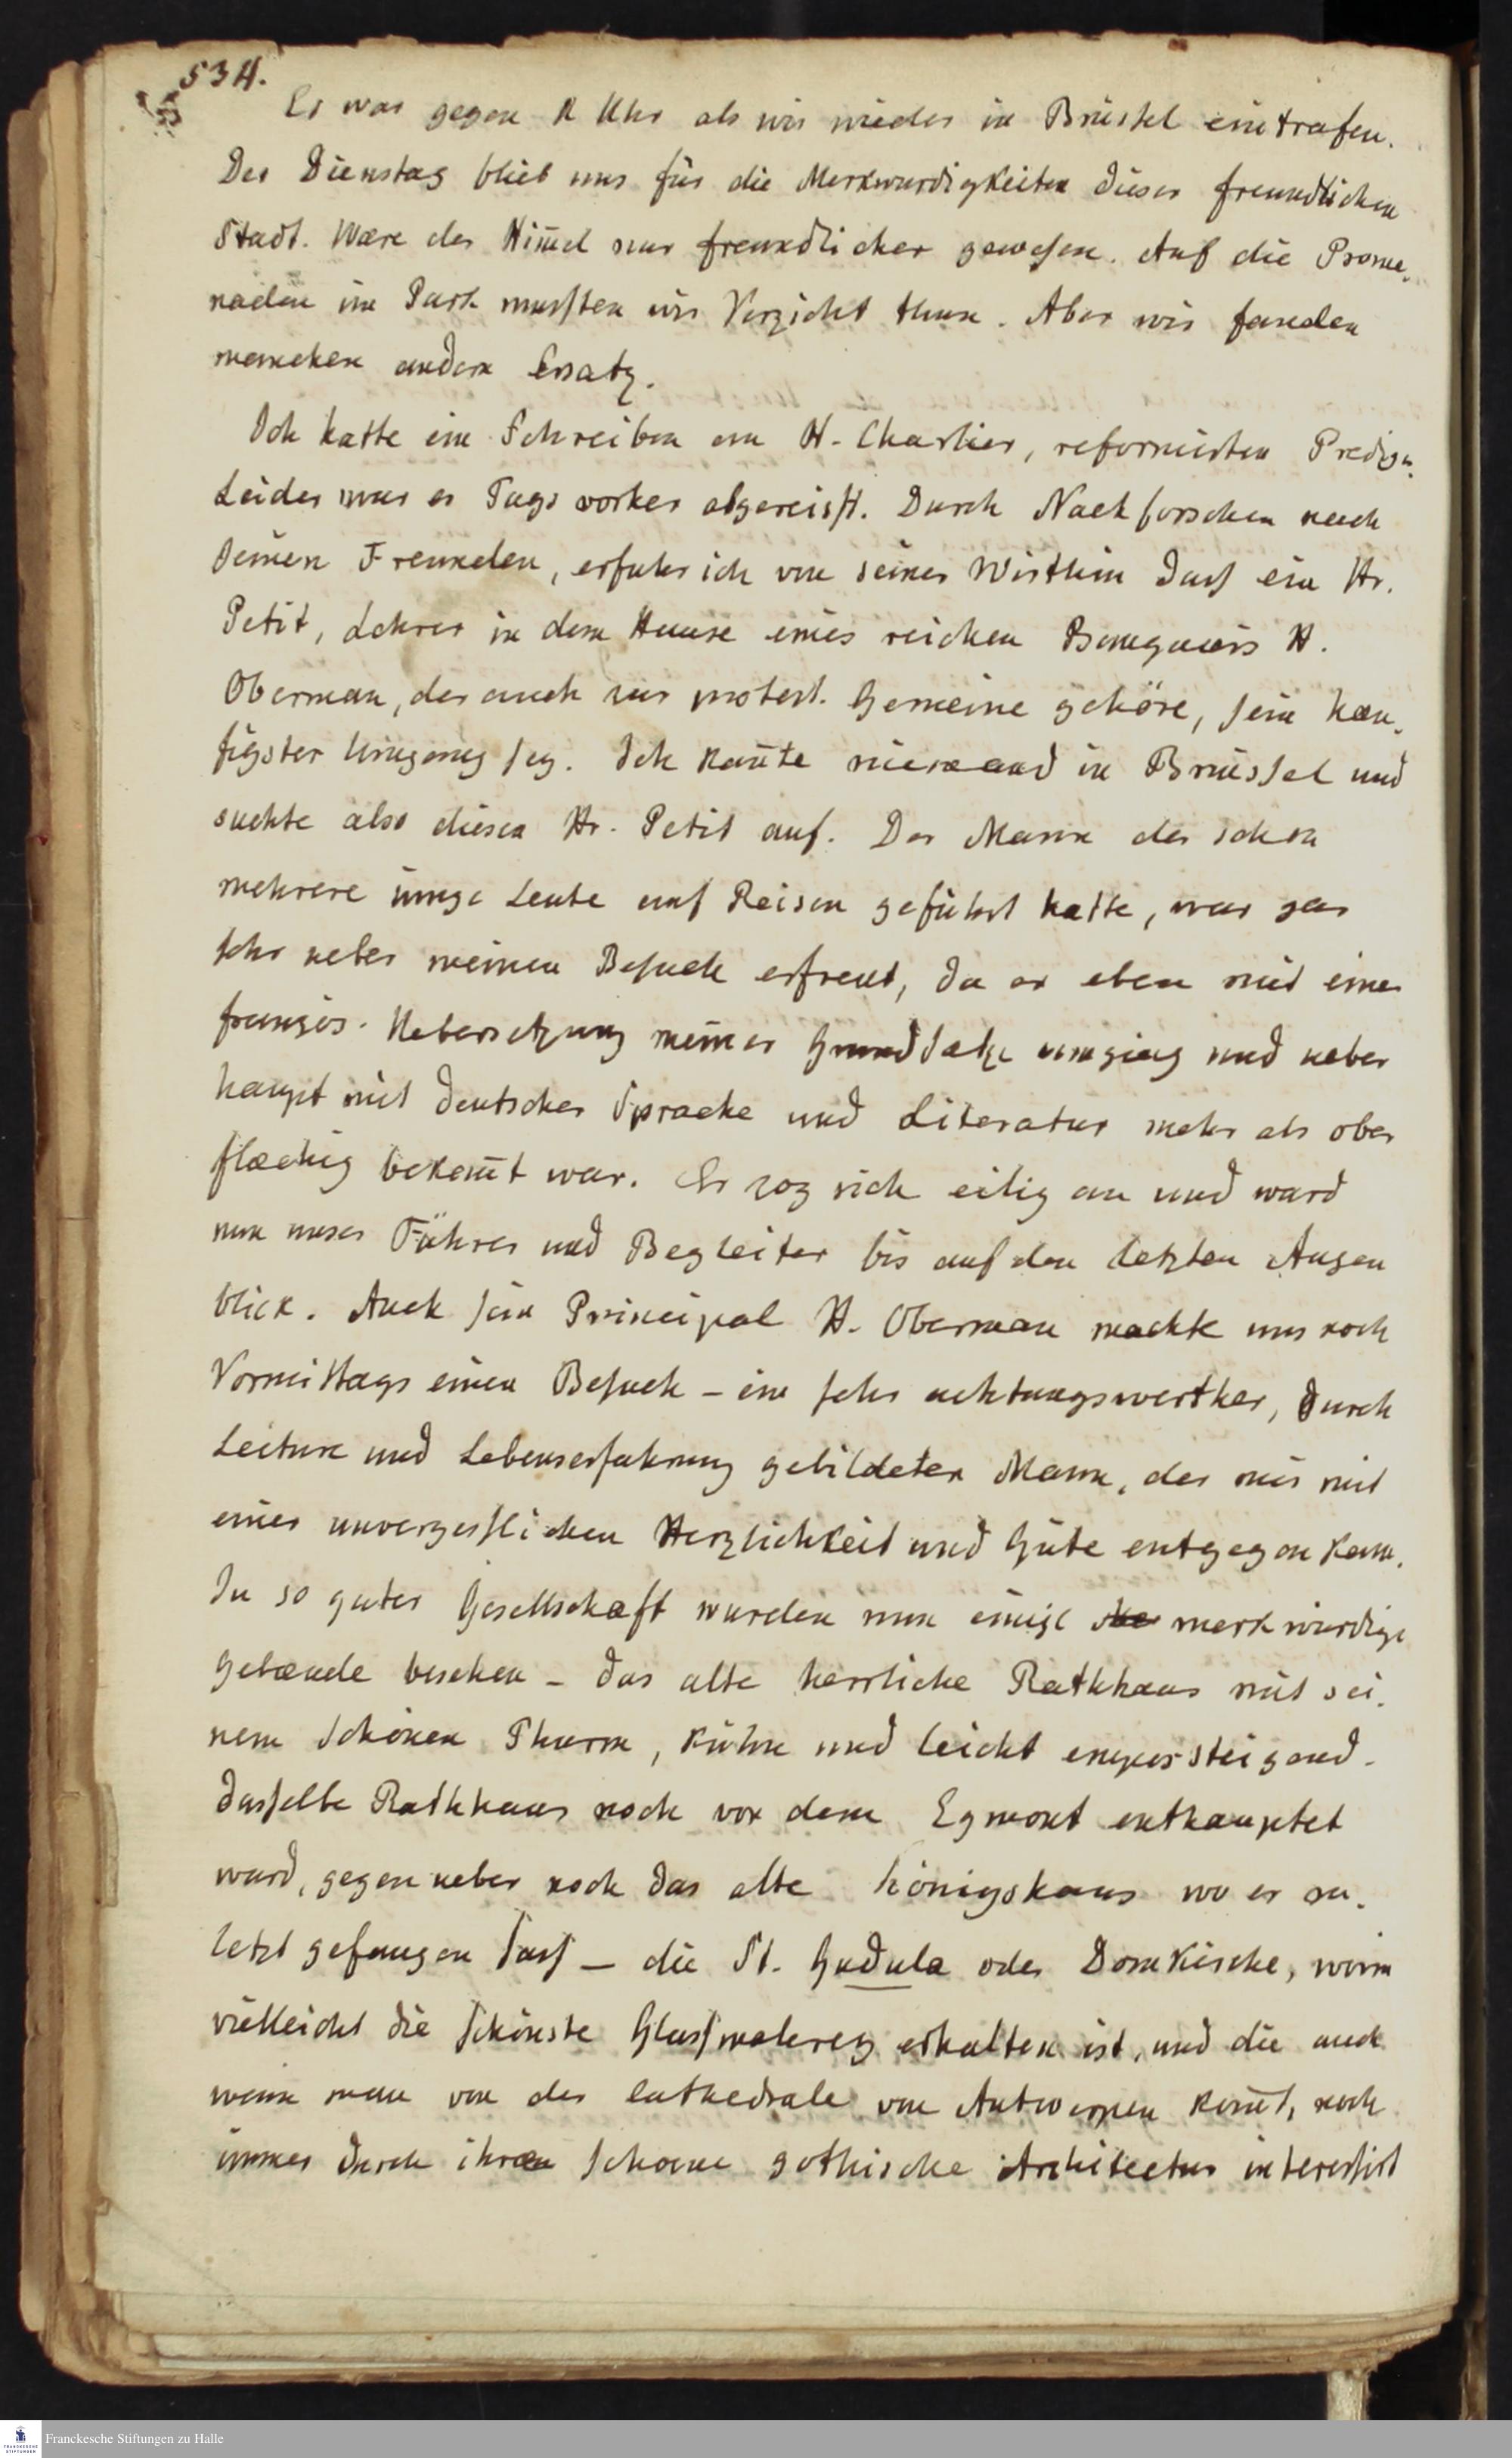 534.
Es war gegen 8 Uhr als wir wieder in Brüssel eintrafen.
Der Dienstag blieb uns für die Merkwurdigkeiten dieser freundlichen
Stadt. Wære der Him̅el nur freundlicher gewesen. Auf die Prome-
naden im Park mussten wir Verzicht thun. Aber wir fanden
manchen andern Ersatz.
Ich hatte ein Schreiben an H. Charlier, reformirten Prediger.
Leider war er Tags vorher abgereisst. Durch Nachforschen nach
seinen Freunden, erfuhr ich von seiner Wirthin dass ein Hr.
Petit, Lehrer in dem Hause eines reichen Banquiers H.
Oberman, der auch zur protest. Gemeine gehöre, sein hæu-
figster Umgang sey. Ich kan̅te niemand in Brüssel und
suchte also diesen Hr. Petit auf. Der Mann der schon
mehrere iunge Leute auf Reisen geführt hatte, war gar
sehr ueber meinen Besuch erfreut, da er eben mit einer
französ. Uebersetzung meiner Grundsätze umging und ueber
haupt mit deutscher Sprache und Literatur mehr als ober
flæchig bekan̅t war. Er zog sich eilig an und ward
nun unser Führer und Begleiter bis auf den letzten Augen
blick. Auch sein Principal H. Oberman machte uns noch
Vormittags einen Besuch – ein sehr achtungswerther, durch
Lecture und Lebenserfahrung gebildeter Mann, der mir mit
einer unvergesslichen Herzlichkeit und Güte entgegen kam.
In so guter Gesellschaft wurden nun einige merkwürdige
Gebæude besehen – das alte herrliche Rathhaus mit sei-
nem schönen Thurm, kühn und leicht emporsteigend –
dasselbe Rathhaus noch vor dem Egmont enthauptet
ward, gegen ueber noch das alte Königshaus wo er zu-
letzt gefangen sass – die St. Gudula oder Domkirche, worin
vielleicht die schönste Glassmalerey erhalten ist, und die auch
wenn man von der Cathedrale von Antwerpen kom̅t, noch
immer durch ihre schoene gothische Architectur interessirt
Franckesche Stiftungen zu Halle